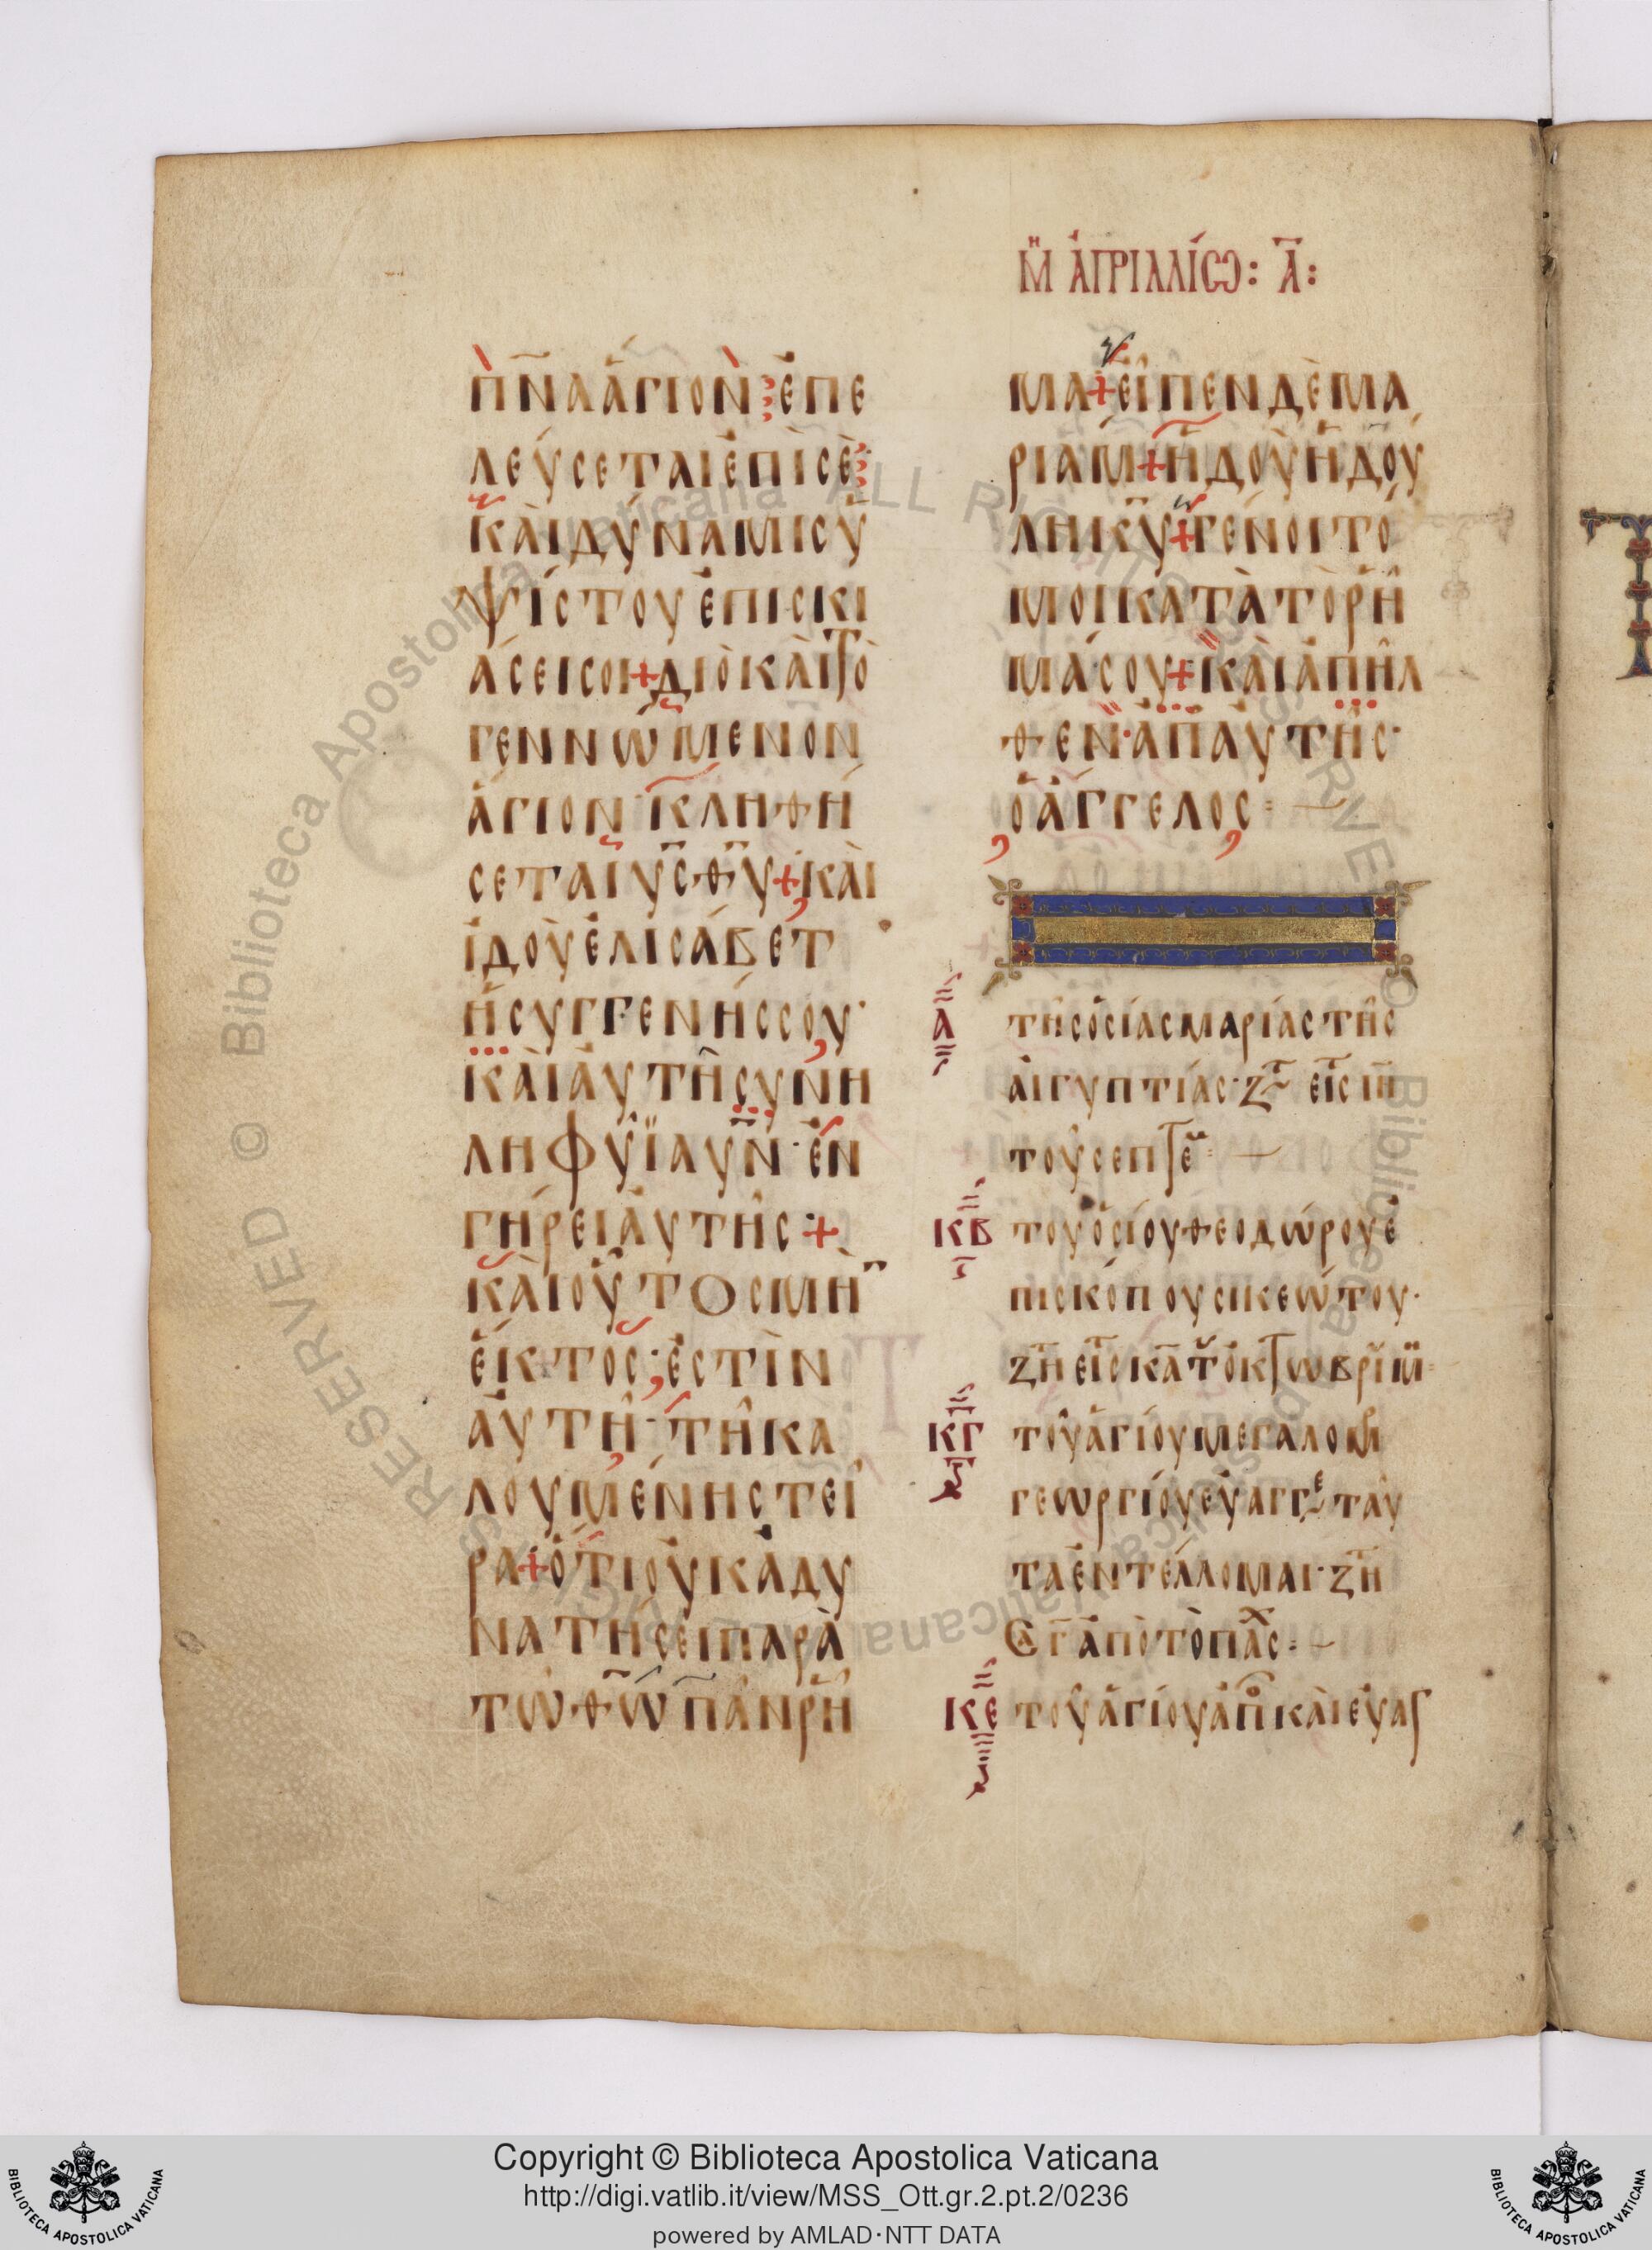 Μ̅Η ἈΓΡΙΛΛΊΩ: Α̅:
π̅ν̅α ἅγιον ἐπε
λεύσεται ἐπὶ σὲ
καὶ δύναμις ὑ
ψίστου ἐπισκι
άσει σοι + διὸ καὶ τὸ
γεννώμενον
ἅγιον κληθή
σεται υ̅ς θ̅υ + καὶ
ἰδοὺ ἐλισάβετ
ἡ συγγενής σου·
καὶ ἀυτὴ συνη
ληφυῖα υ̅ν· ἐν
γήρει ἀυτῆς +
καὶ οὗτος μὴν
ἕκτος ἐστὶν
ἀυτῇ· τῇ κα
λουμένη στεί
ρα + ὅτι οὐκ ἀδυ
νατήσει παρὰ
τῶ θ̅ω πᾶν ρῆ
μα + εἶπεν δὲ μα
ριάμ + ἡ δοὺ ἡ δού
λη κ̅υ + γένοιτό
μοι κατὰ τὸ ρῆ
μά σου + καὶ ἀπῆλ
θεν· ἀπ ἀυτῆς·
ὁ ἄγγελος
Α τῆς ὁσίας μαρίας τῆς
αἰγυπτίας· ζτ εἰς τη
τοῦ σεπτε
ΚΒ τοῦ ὁσίου θεοδώρου ἐ
πισκόπου σικεώτου·
ζτη εἰς κα τοῦ ὀκτωβρίου
ΚΓ τοῦ ἁγίου μεγαλομ
γεωργίου εὐαγγε ταῦ
τα ἐντέλλομαι· ζτη
Σα γ ἀπὸ τὸ πάσχ
ΚΕ τοῦ ἁγίου ἀπο καὶ εὐαγ
Copyright © Biblioteca Apostolica Vaticana
http://digi.vatlib.it/view/MSS_Ott.gr.2.pt.2/0236
powered by AMLAD·NTT DATA
BIBLIOTECA APOSTOLICA VATICANA
BIBLIOTECA APOSTOLICA VATICANA